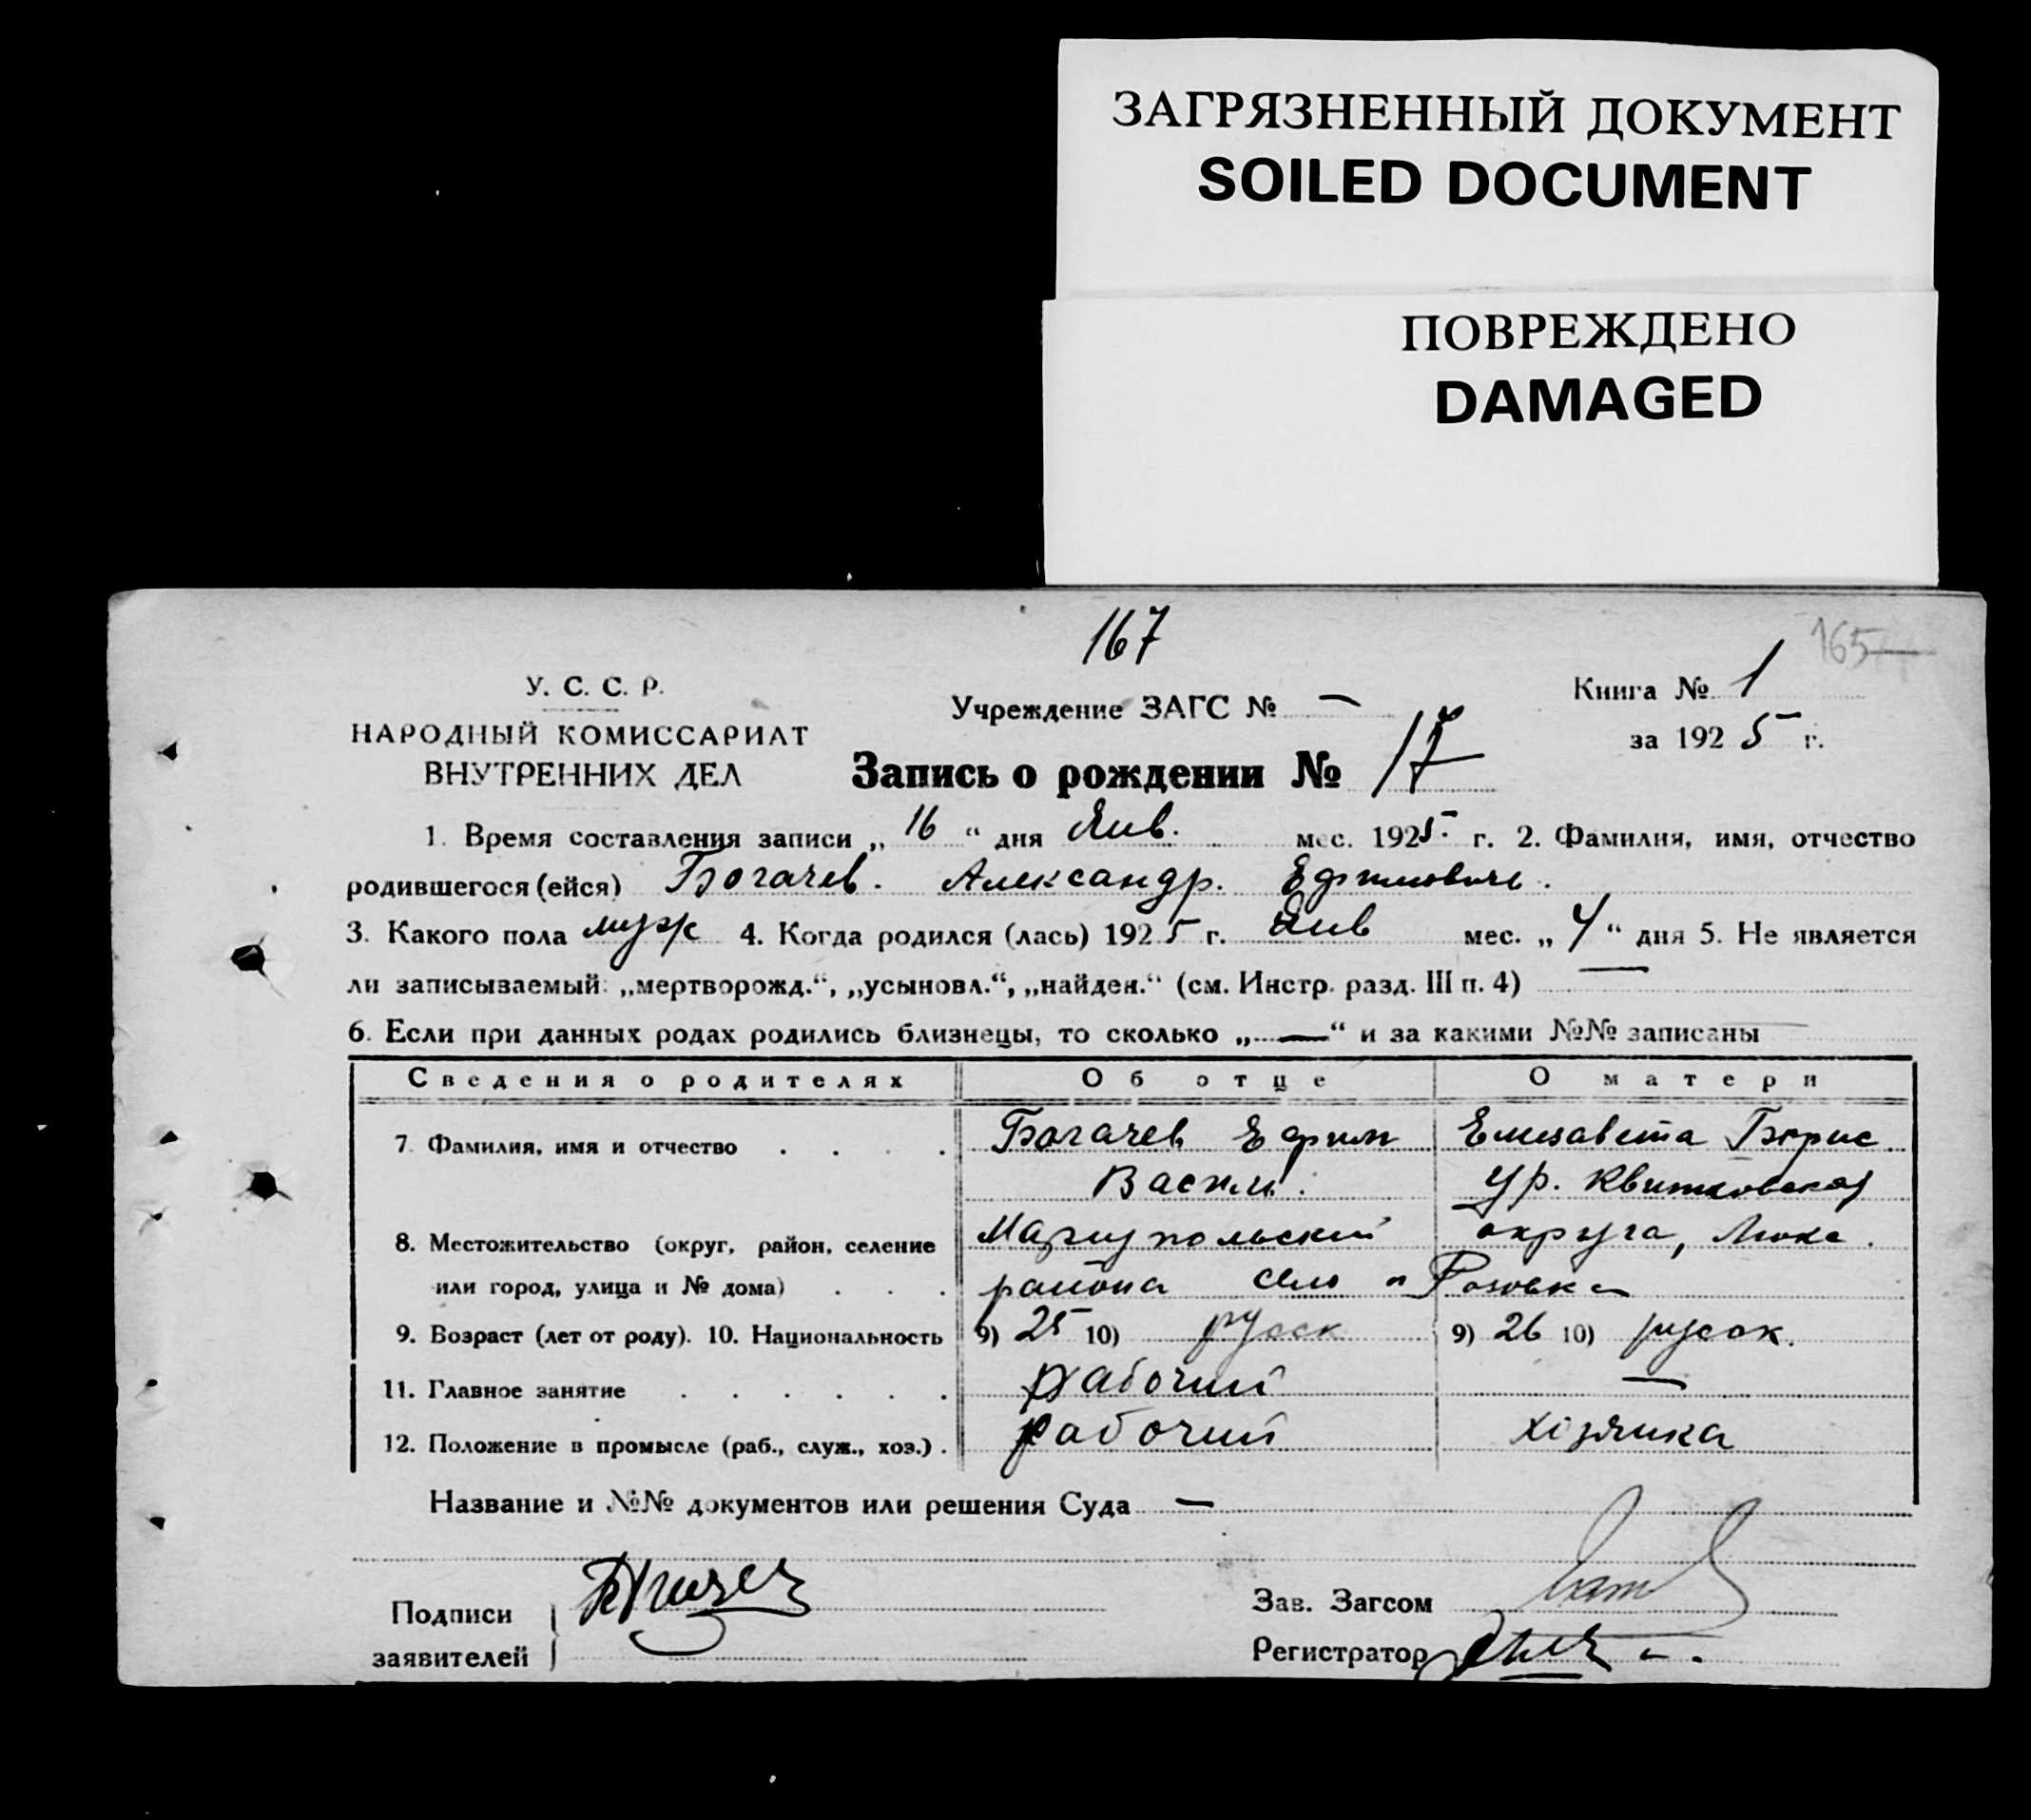 ЗАГРЯЗНЕННЫЙ ДОКУМЕНТ
SOILED DOCUMENT
ПОВРЕЖДЕНО
DAMAGED
167
165
У. С. С. Р.
НАРОДНЫЙ КОМИССАРИАТ
ВНУТРЕННИХ ДЕЛ
Учреждение ЗАГС № —
Книга № 1
за 1925 г.
Запись о рождении № 17
1. Время составления записи „16“ дня Янв. мес. 1925 г. 2. Фамилия, имя, отчество
родившегося (ейся) Богачев. Александр. Ефимовичь.
3. Какого пола муж 4. Когда родился (лась) 1925 г. Янв мес. „4“ дня 5. Не является
ли записываемый: „мертворожд.“, „усыновл.“, „найден.“ (см. Инстр. разд. III п. 4) —
6. Если при данных родах родились близнецы, то сколько „—“ и за какими №№ записаны —
Сведения о родителях Об отце О матери
7. Фамилия, имя и отчество . . . . Богачев Ефим Елизавета Борис.
Васил. ур. Квитковская
8. Местожительство (округ, район, селение Мариупольский округа, Люкс.
или город, улица и № дома) . . . района село „Розовка
9. Возраст (лет от роду). 10. Национальность 9) 25 10) русск 9) 26 10) русск.
11. Главное занятие . . . . . . рабочий —
12. Положение в промысле (раб., служ., хоз.) . рабочий хізяика
Название и №№ документов или решения Суда —
Подписи
заявителей
Зав. Загсом
Регистратор